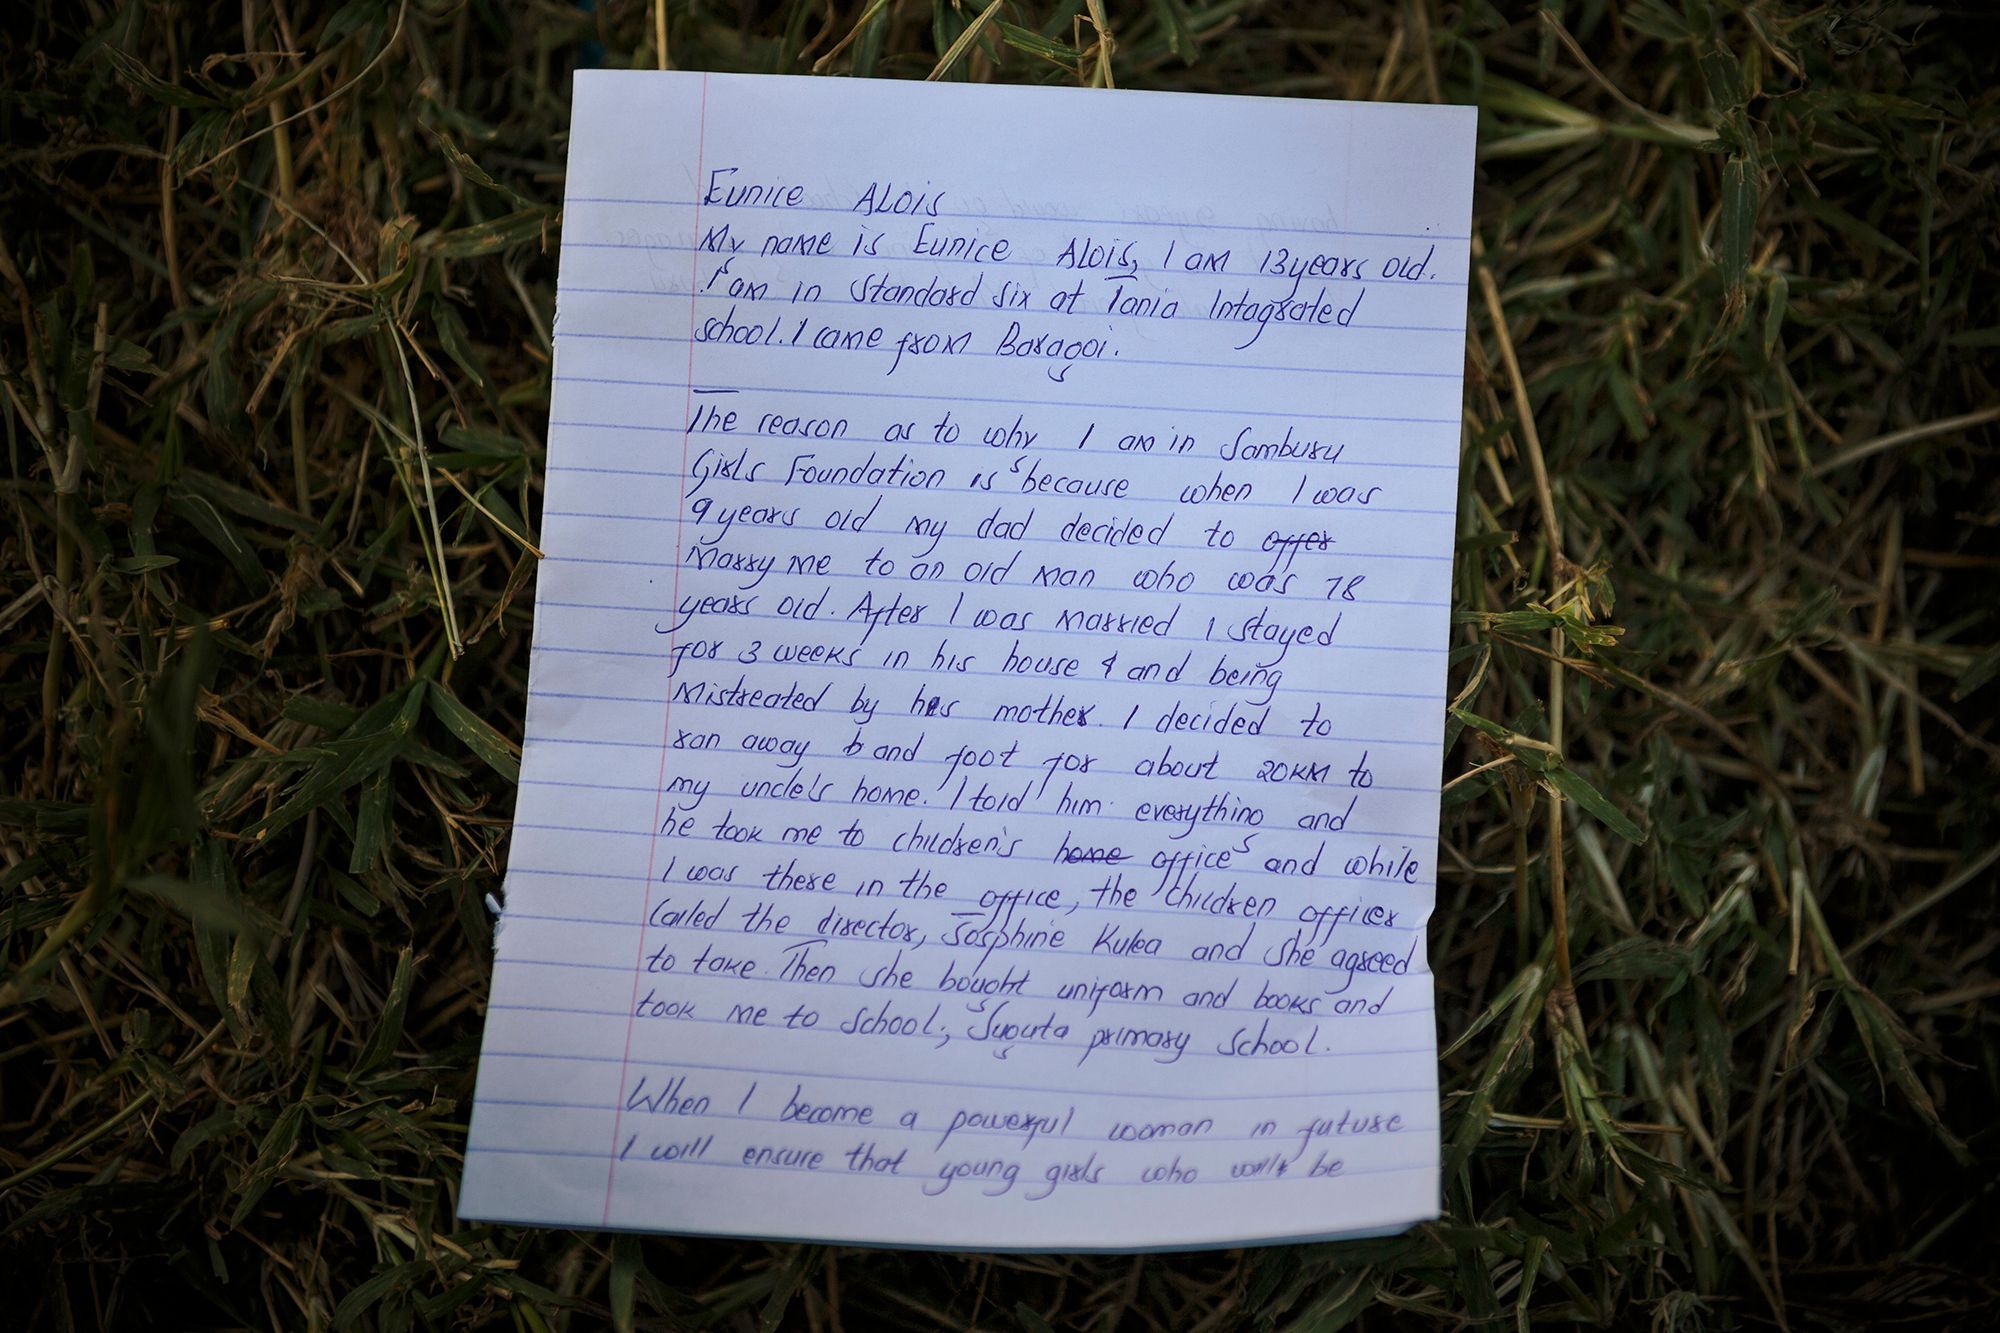 Eunice Alois
My name is Eunice Alois, I am 13years old.
I am in standard six at Tania Intagrated
school. I came from Baragoi.
The reason as to why I am in Samburu
Girls Foundation is because when I was
9 years old my dad decided to offer
marry me to an old man who was 78
years old. After I was married I stayed
for 3 weeks in his house & and being
mistreated by his mother. I decided to
ran away b and foot for about 20KM to
my uncle's home. I told him everything and
he took me to children's home offices and while
I was there in the office, the children officer
called the director, Josphine Kulea and she agreed
to take. Then she bought uniform and books and
took me to school; Suguta primary school.
When I become a powerful woman in future
I will ensure that young girls who will be